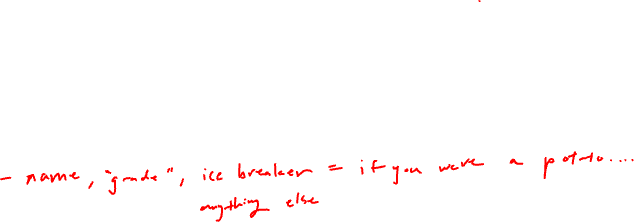 - name, "grade", ice breaker = if you were a potato....
anything else